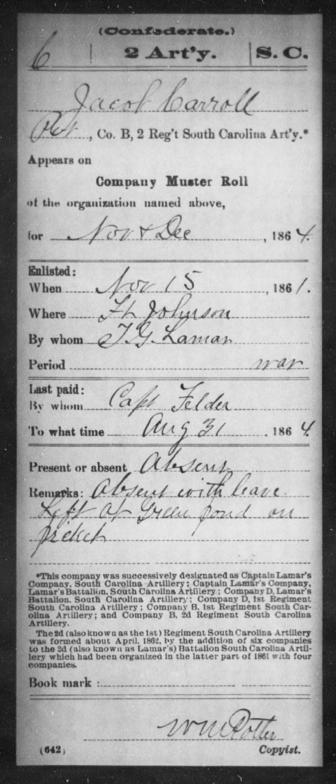 (Confederate.)
6 2 Art'y. S. C.
Jacob Carroll
Pvt, Co. B, 2 Reg't South Carolina Art'y.*
Appears on
Company Muster Roll
of the organization named above,
for Nov & Dec, 1864.
Enlisted:
When Nov 15, 1861.
Where Ft Johnson
By whom T. G. Lamar
Period war
Last paid:
By whom Capt Felder
To what time Aug 31, 1864.
Present or absent Absent
Remarks: Absent with leave
Left at Green pond on
picket
*This company was successively designated as Captain Lamar's
Company, South Carolina Artillery; Captain Lamar's Company,
Lamar's Battalion, South Carolina Artillery; Company D, Lamar's
Battalion, South Carolina Artillery; Company D, 1st Regiment
South Carolina Artillery; Company B, 1st Regiment South Car-
olina Artillery; and Company B, 2d Regiment South Carolina
Artillery.
The 2d (also known as the 1st) Regiment South Carolina Artillery
was formed about April, 1862, by the addition of six companies
to the 2d (also known as Lamar's) Battalion South Carolina Artil-
lery which had been organized in the latter part of 1861 with four
companies.
Book mark:
Wm Potter
(642) Copyist.